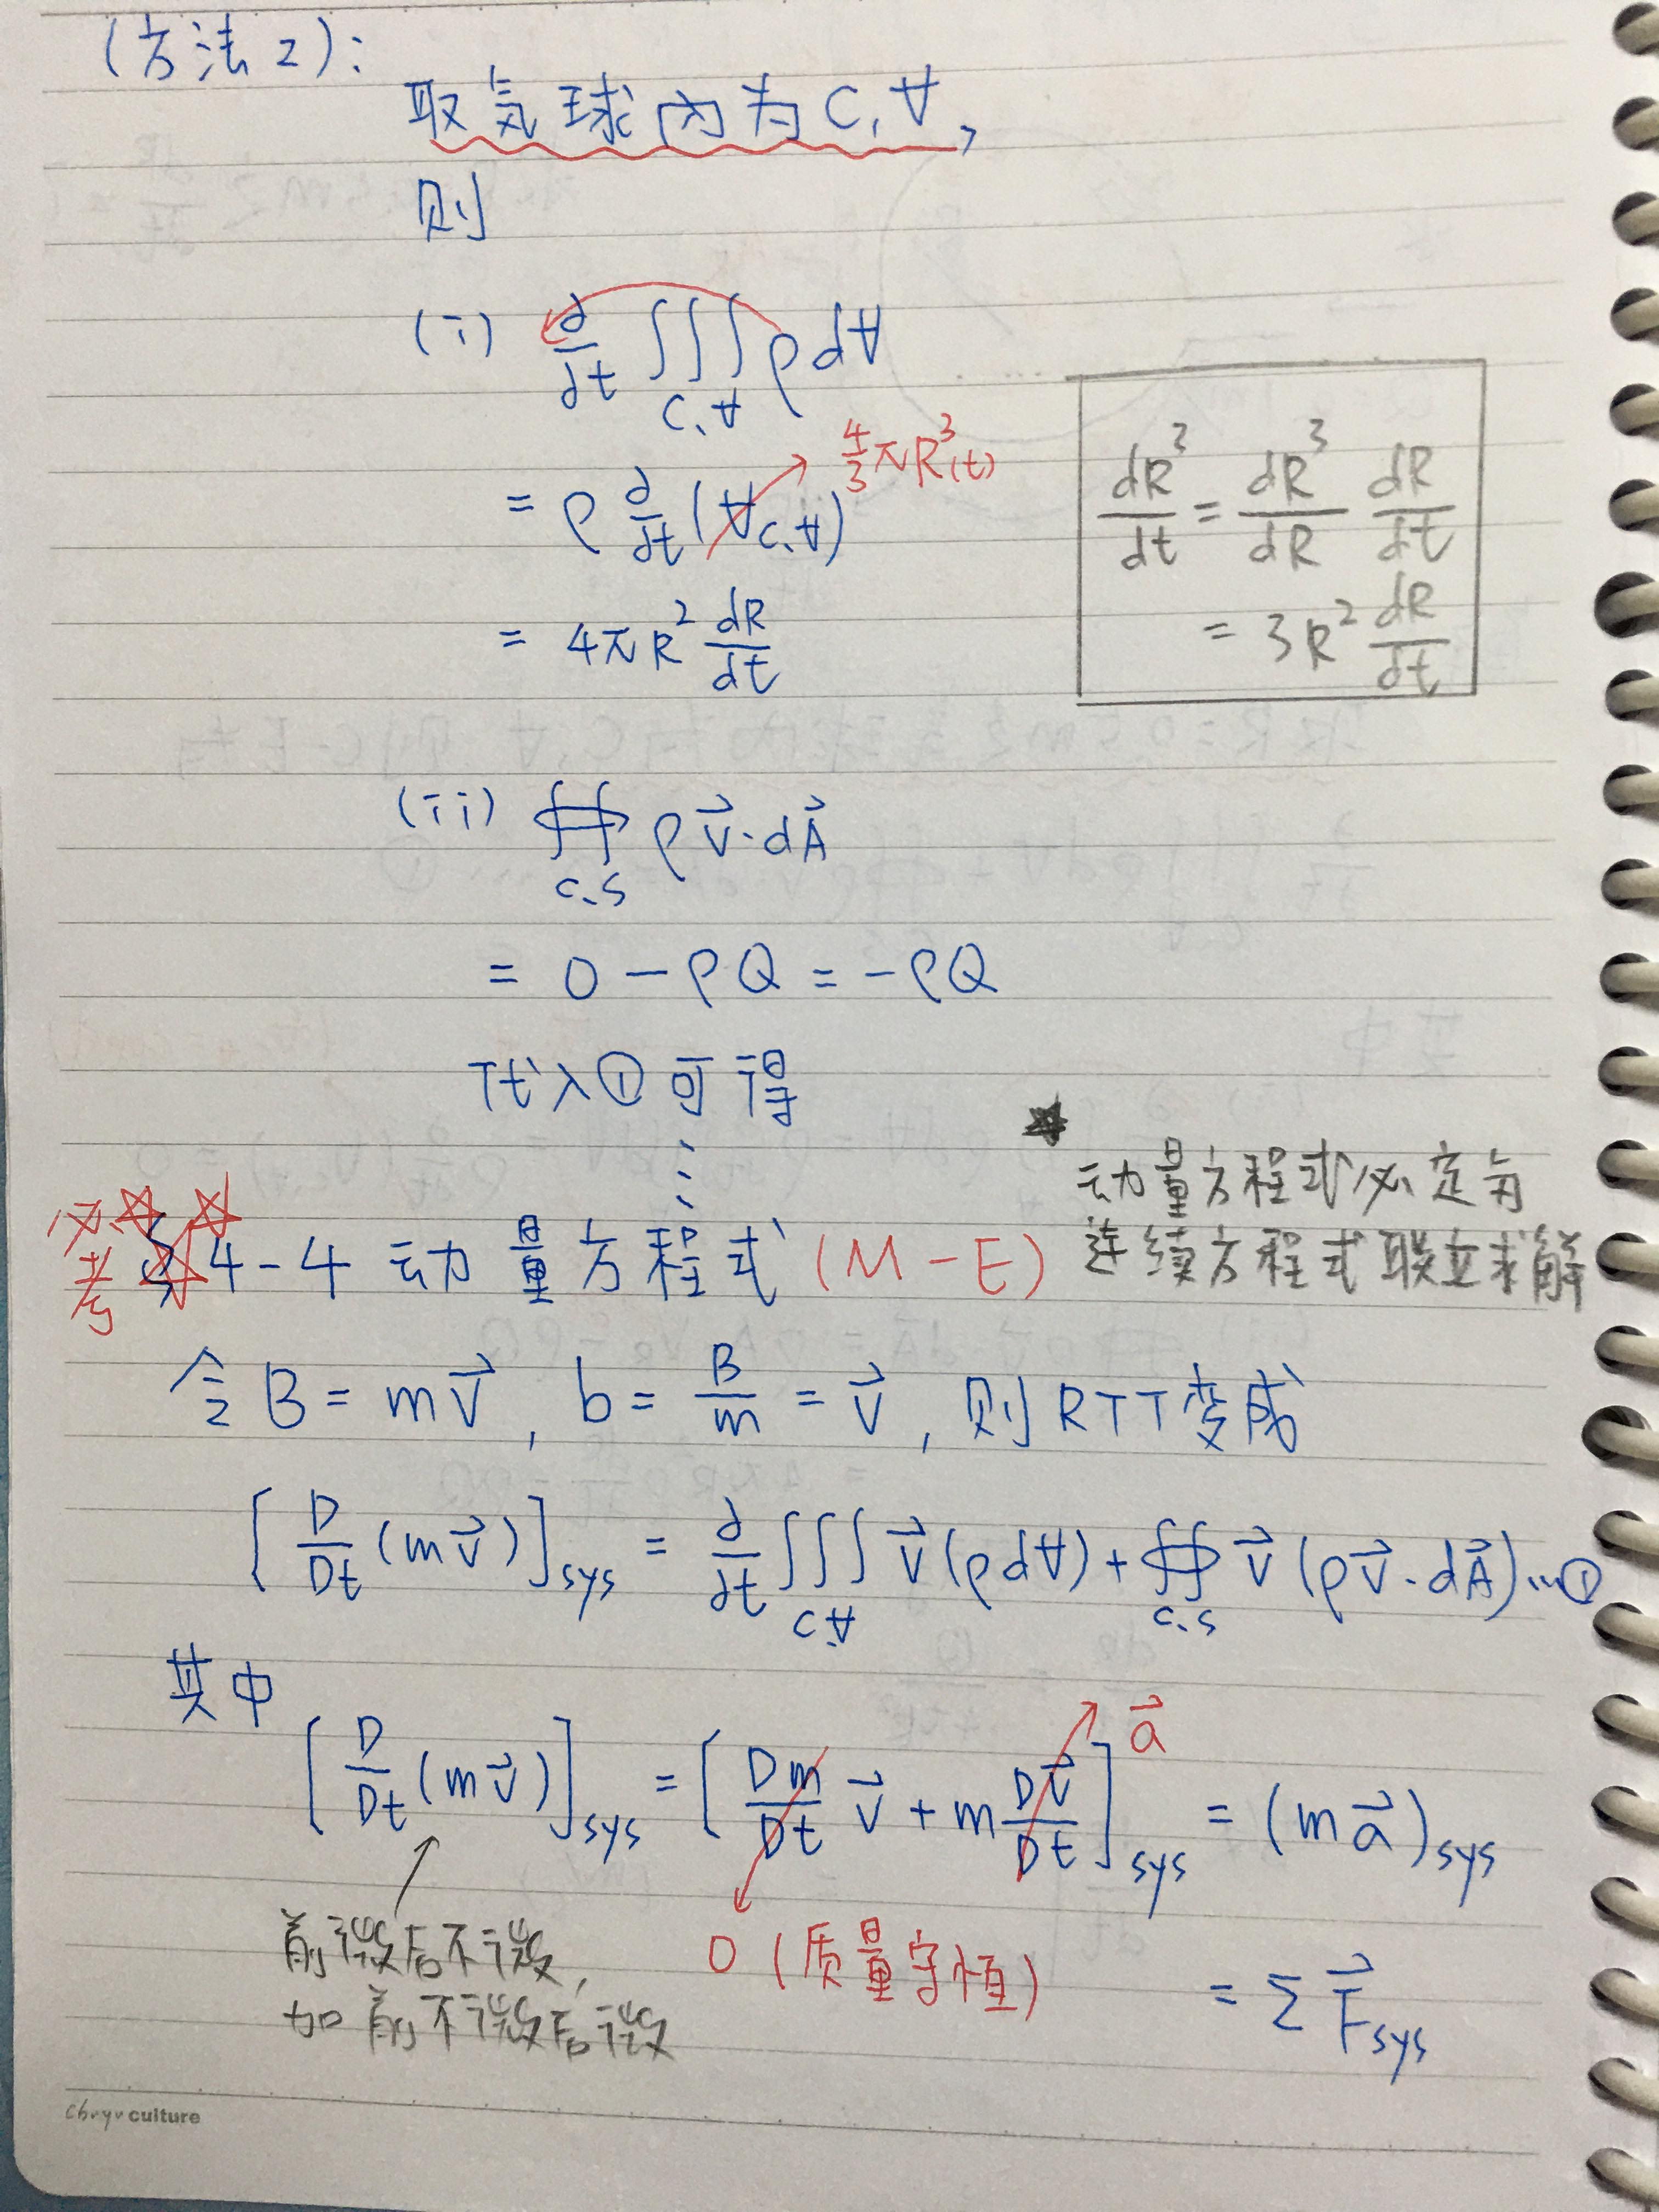 (方法2):
取気球内为C.∀,
则
(i) ∂/∂t ∭_C.∀ ρd∀
= ρ ∂/∂t (∀_C.∀) 4/3 πR³(t)
= 4πR² dR/dt
dR³/dt = dR³/dR dR/dt
= 3R² dR/dt
(ii) ∯_C.S ρV⃗·dA⃗
= 0 − ρQ = −ρQ
代入①可得
⋮
★
动量方程式必定与
连续方程式联立求解
必考 ☆☆☆
§4-4 动量方程式 (M-E)
令B = mV⃗, b = B/m = V⃗, 则RTT变成
[D/Dt (mV⃗)]_sys = ∂/∂t ∭_C.∀ V⃗(ρd∀) + ∯_C.S V⃗(ρV⃗·dA⃗)…①
其中
[D/Dt (mV⃗)]_sys = [Dm/Dt V⃗ + m DV⃗/Dt]_sys = (ma⃗)_sys
a⃗
前微后不微,
加前不微后微
0 (质量守恒)
= ΣF⃗_sys
chuyu culture